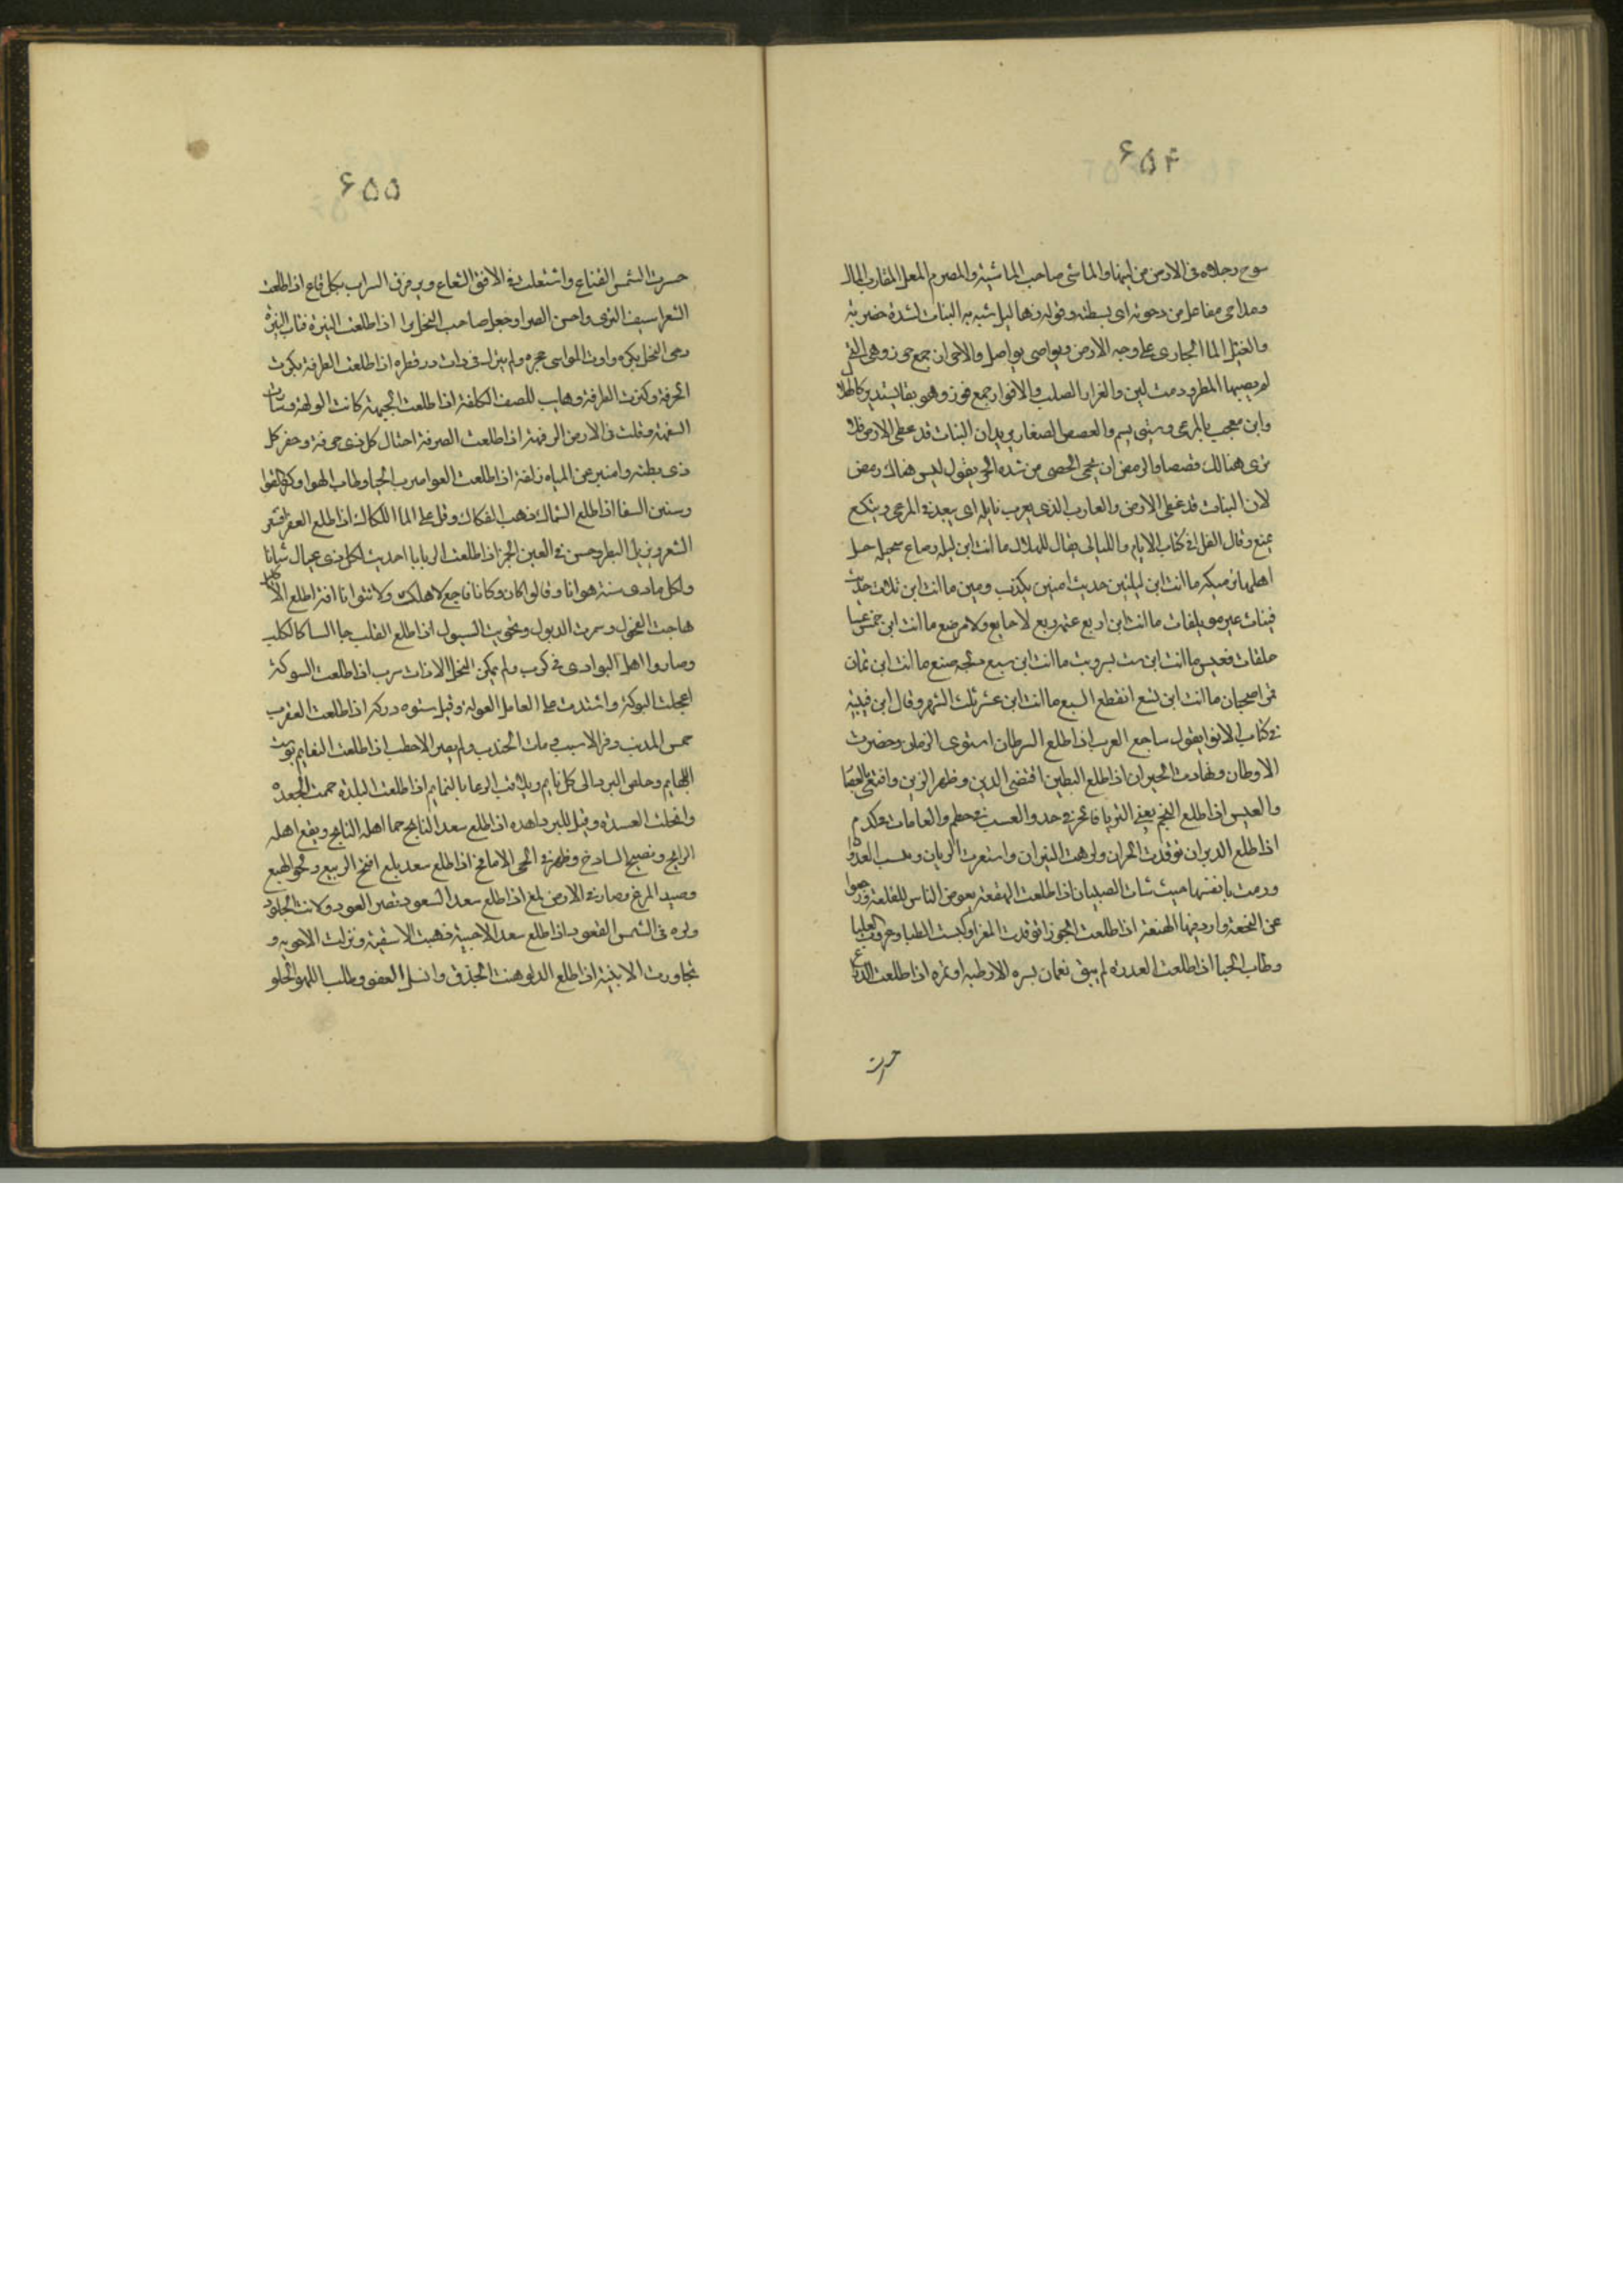 ۶۵۴
سوح رجلاه فى الارض من لينها والماشى صاحب الماشية والمصرم المعل المقارب المال
ومداحى مفاعل من دحوته اى بسطته وقوله وهاليل شبه به النبات لشدة خضرته
والغيل الما الجارى على وجه الارض ويواصى يواصل والاجوان جمع جوز وهى التى
لم يصبها المطر ودمث لين والغزار الصلب والاقواز جمع قوز وهو نقا يستدير كالهلال
وابن معجب بالمرعى وستى يسم والعصص الصغار يريد ان النبات قد غطى الارض فلا
ترى هنالك قصصا والرمض ان يحمى الحصى من شدة الحر يقول ليس هناك رمض
لان النبات قد غطى الارض والعازب الذى يعزب بابله اى يبعد فى المرعى وينكع
يمنع وقال الفرا فى كتاب الايام والليالى يقال للهلال ما انت ابن ليله رضاع سخيله حل
اهلها برميله ما انت ابن ليلتين حديث امتين بكذب ومين ما انت ابن ثلاث حديث
فتيات غير موتلفات ما انت ابن اربع عتمه ربع لا جايع ولا مرضع ما انت ابن خمس عشا
خلفات قعيس ما انت ابن ست سر وبت ما انت ابن سبع دلجه ضبع ما انت ابن ثمان
قمر اضحيان ما انت ابن تسع انقطع الشسع ما انت ابن عشر ثلث الشهر وقال ابن قتيبه
فى كتاب الانوا يقول ساجع العرب اذا طلع السرطان استوى الزمان وحضرت
الاوطان وتهادت الجيران اذا طلع البطين اقتضى الدين وظهر الزين واقتفى بالعطا
والعيس اذا طلع النجم يعنى الثريا فالحر فى حدو العسب فى حطم والعامات فى كدم
اذا طلع الدبران توقدت الحزان وكرهت النيران واستعرت الريان ويبست الغدران
ورمت بانفسها حيث شات الصبيان اذا طلعت الهقعة يعرض الناس للقلعة ورجعوا
عن النجعة واردفها الهنعة اذا طلعت الجوزا توقدت المعزا وكنست الظبا وعرقت العلبا
وطاب الخبا اذا طلعت العذرة لم يبق بعمان بسره الا رطبه او تمره اذا طلعت الذراع
حسرت
۶۵۵
حسرت الشمس القناع واشتعلت فى الافق الشعاع وترقرق السراب بكل قاع اذا طلعت
الشعرا سيف الثرى واجن الصرا وجعل صاحب النخل يرا اذا طلعت النثرة قنات البسرة
وجنى النخل بكره واوت المواسى حجره ولم يترك فى ذات در قطره اذا طلعت الطرفة بكرت
الخرفة وكثرت الطرفة وهابت للضيف الكلفة اذا طلعت الجبهة كانت الولهة وتنازت
السفهة وقلت فى الارض الرفهة اذا طلعت الصرفة احتال كل ذى حرفة وحفر كل
ذى بطنه وامتيز عن المياه زلفة اذا طلعت العوا ضرب الخبا وطاب الهوا وكره العرا
وسنن السقا اذا طلع السماك ذهب العكاك وقل على الما اللكاك اذا طلع الغفر اقشعر
السفر وتزيل النطر وحسن فى العين الجمر اذا طلعت الزبانا احدثت لكل ذى عيال شانا
ولكل ماذى سنة هوانا وقالوا كان وكانا فاجمع لاهلك ولا توانا اذا طلع الاكليل
هاجت الفحول وشمرت الذيول وتخوفت السيول اذا طلع القلب جا الشتا كالكلب
وصاروا اهل البوادى فى كرب ولم يمكن الفحل الا ذات سرب اذا طلعت الشوكة
اعجلت البوكة واشتدت على العامل العولة وقيل ستوه دركه اذا طلعت العقرب
حمس المذنب وفر الاشيب ومات الجندب ولم يصر الاخطب اذا طلعت النعايم توسفت
البهايم وخلص البرد الى كل نايم وتلاقت الرعا بالنمايم اذا طلعت البلدة حممت الجعدة
واكلت القشدة وقيل للبرد اهده اذا طلع سعد الذابح حما اهله النابح ونفع اهله
الرايح وتصبح السارح وظهرت فى الحى الانافح اذا طلع سعد بلع اقتحم الربيع ولحق الهبع
وصيد المرع وصار فى الارض لمع اذا طلع سعد السعود نضر العود ولانت الجلود
وكره فى الشمس القعود اذا طلع سعد الاخبية دهنت الاسقية ونزلت الاحويه و
تجاورت الابنية اذا طلع الدلو هيبت الجذو وانسل العفو وطلب اللهو الخلو